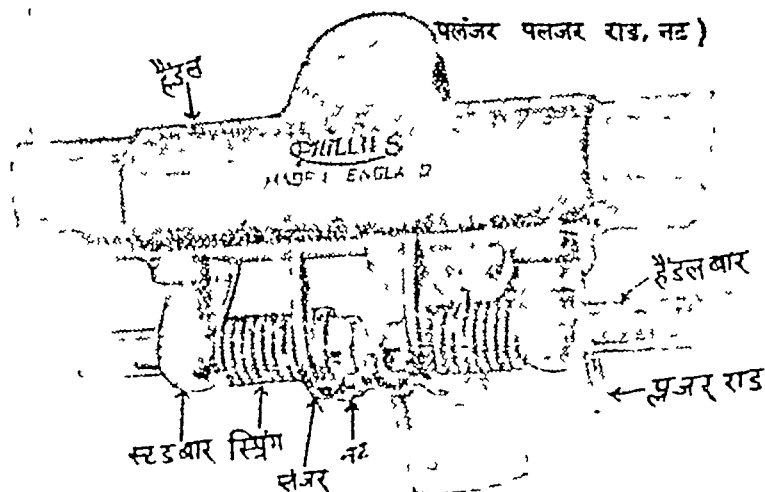 पलंजर पलजर राड, नट )
हैंडल
PHILLIPS
MADE I ENGLA D
हैंडल बार
प्लजर राड
स्टडबार स्प्रिंग
नट